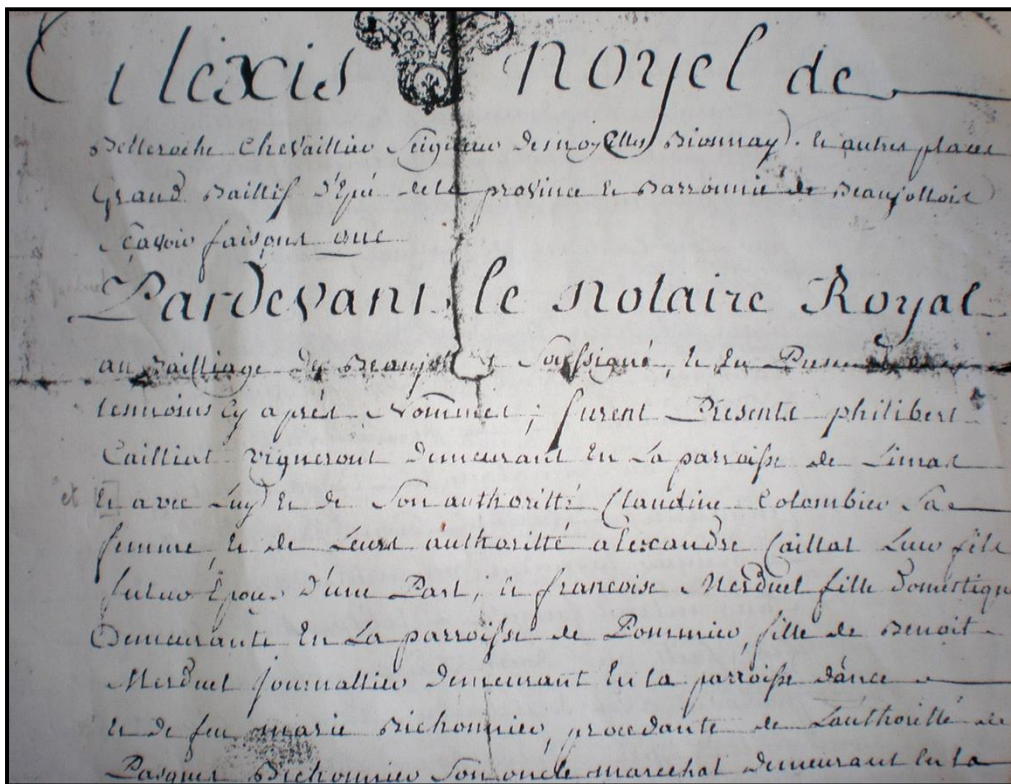 Alexis Noyel de
Belleroche Chevaillier Seigneur de noyelles Bionnay. & autres places
Grand Baillif d'épé de la province & Barronnie de Beaujollois
Sçavoir faisons que
Pardevant le notaire Royal
au Bailliage de Beaujollois Soussigné, & En Presence des
temoins Cy après Nommes ; furent Presents philibert
Cailliat vigneront demeurant En La parroisse de Limas
et & avec Luy & de Son authoritté Claudine Colombier Sa
femme & de Leurs authoritté alexandre Caillat Leur fils
futur Époux d'une Part, & francoise Merduel fille domestique
Demeurante En La parroisse de Pommier, fille de Benoit
Merduel journallier demeurant En la parroisse d'ance
& de feu marie Bichonnier, procedante de L'authoritté de
Pasques Bichonnier Son oncle marechal demeurant En la